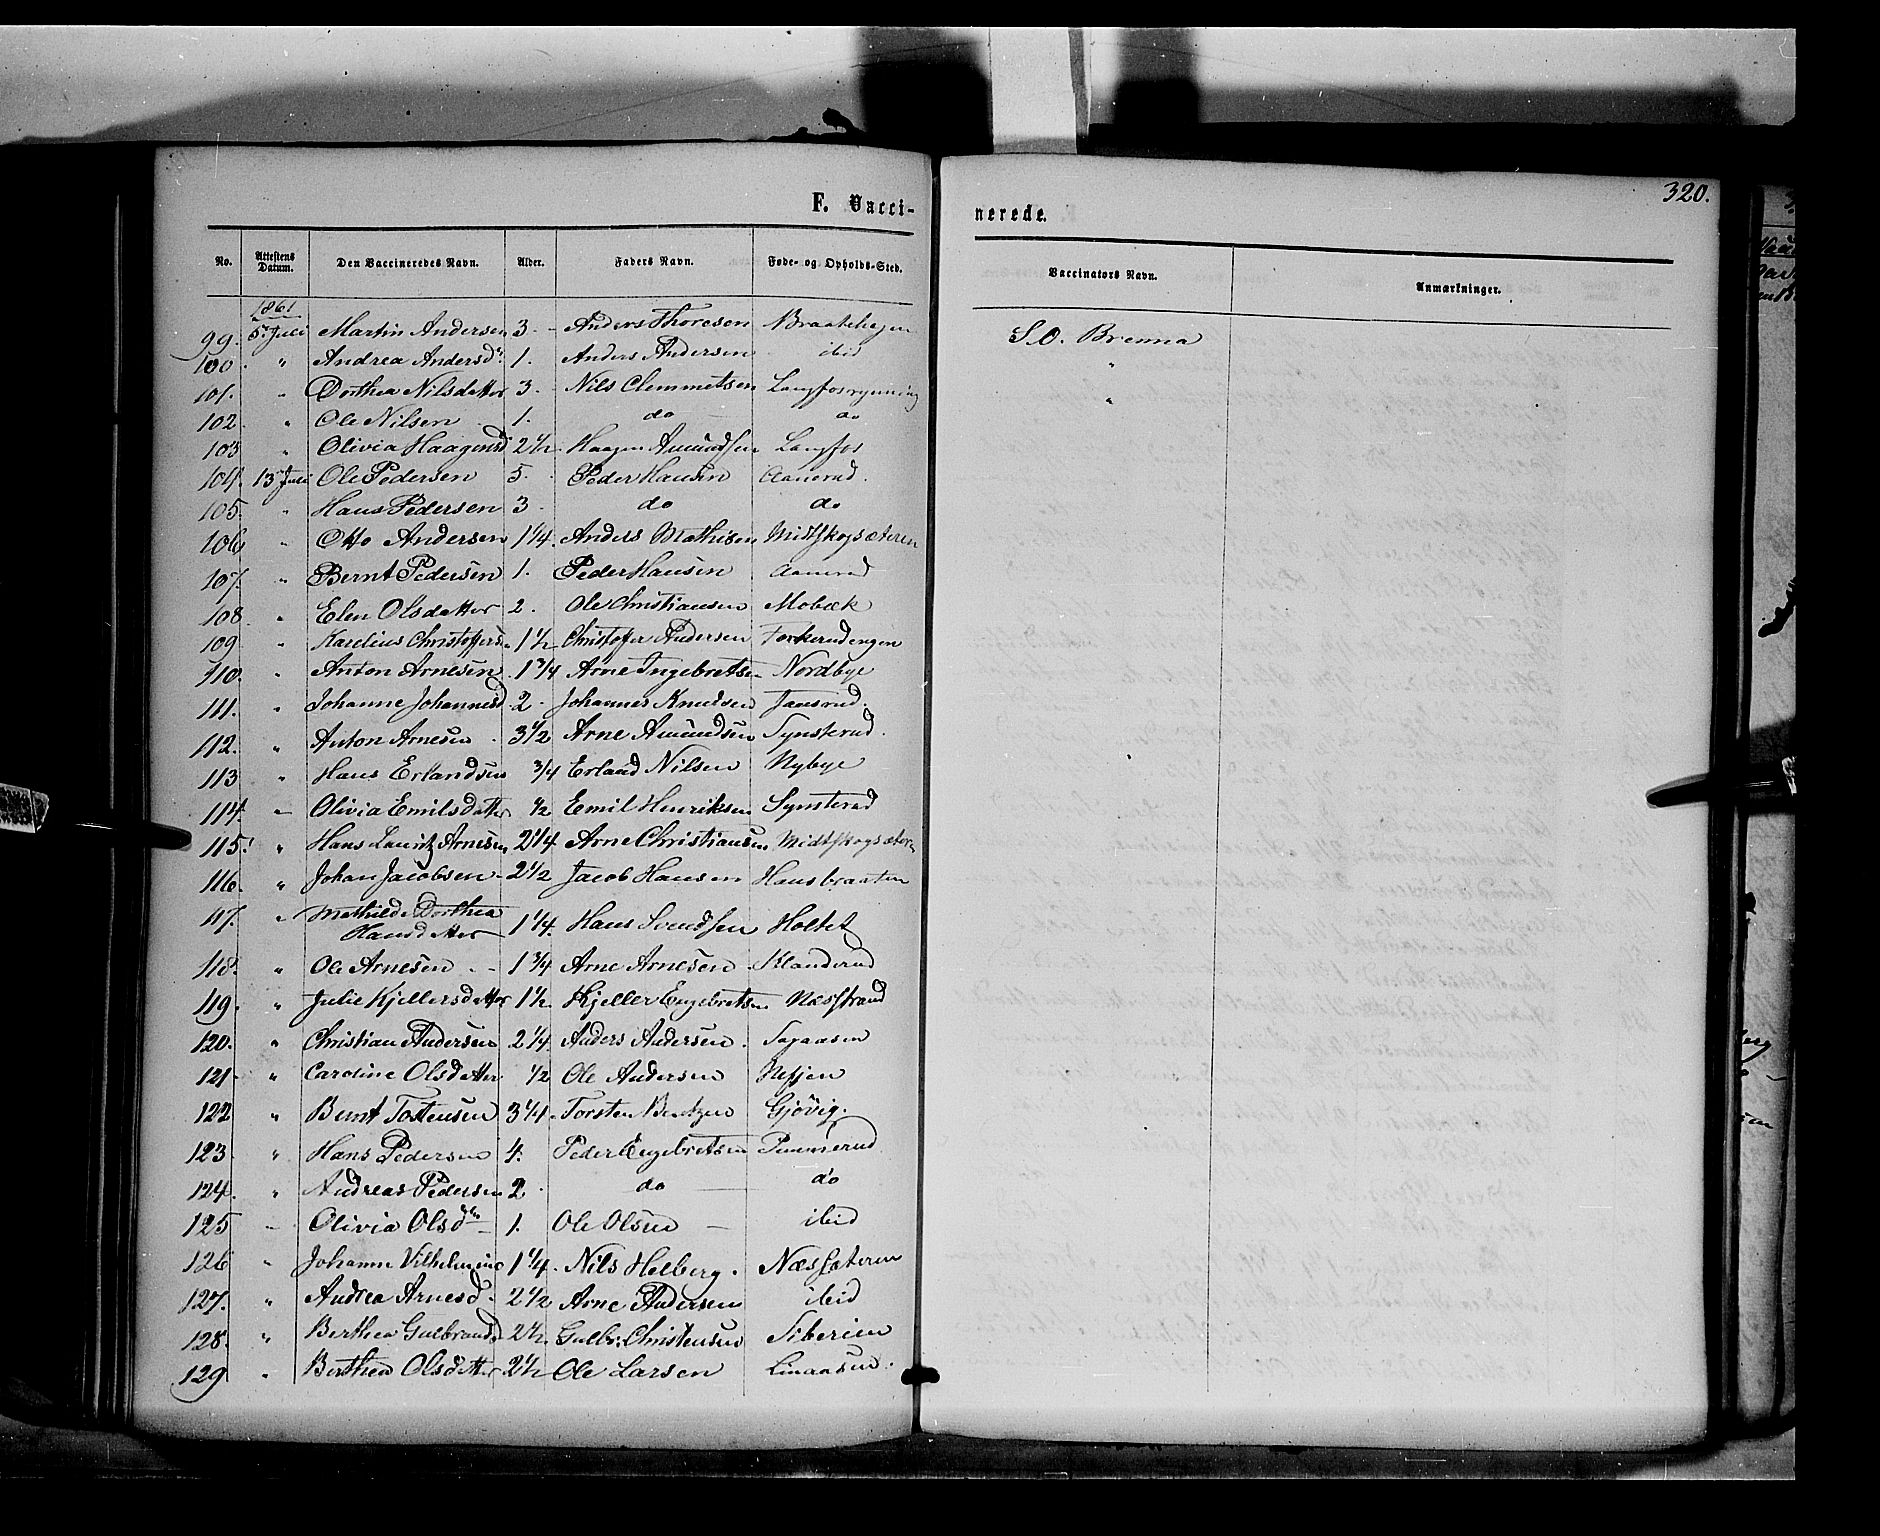 F. Vacci-
nerede.
320.
No. Attestens Datum. Den Vaccineredes Navn. Alder. Faders Navn. Føde- og Opholds-Sted. Vaccinators Navn. Anmærkninger.
1861
99. 5. Juli Martin Andersen 3. Anders Thoresen Braatehagen S.O. Brenna
100. " Andrea Andersd. 1. Anders Andersen ibid "
101. " Dorthea Nilsdatter 3. Nils Clemmetsen Langfosrynning "
102. " Ole Nilsen 1. do do
103 " Olivia Haagensd 2 1/2 Haagen Amundsen Langfos
104. 13 Juli Ole Pedersen 5. Peder Hansen Aanerud.
105. " Hans Pedersen 3 do do
106 " Otto Andersen 1 1/4. Anders Mathisen Midtskogsæteren
107. " Bernt Pedersen 1. Peder Hansen Aanerud
108 " Elen Olsdatter 2. Ole Christiansen Mobæk
109 " Karelius Christoffers. 1 1/2 Christoffer Andersen Forkerudengen
110. " Anton Arnesen 1 3/4 Arne Ingebretsen Nordbye
111. " Johanne Johannesd 2. Johannes Knudsen Jansrud.
112. " Anton Arnesen 3 1/2 Arne Amundsen Synsterud.
113 " Hans Erlandsen 3/4 Erland Nilsen Nybye
114. " Olivia Emilsdatter 1/2 Emil Henriksen Synsterud
115. " Hans Lauritz Arnesen 2 1/4 Arne Christiansen Midtskogsæteren
116. " Johan Jacobsen 2 1/2 Jacob Hansen Hansbraaten
117. " Mathilde Dorthea
Hansdatter 1 1/4. Hans Svendsen Holtet
118. " Ole Arnesen 1 3/4 Arne Arnesen Klanderud
119. " Julie Kjellersdatter 1 1/2. Kjeller Engebretsen Næsstrand
120. " Christian Andersen 2 1/4. Anders Andersen. Sagaasen
121 " Caroline Olsdatter 1/2 Ole Andersen Nessjen
122 " Bernt Tostensen 3 1/4. Torsten Berntzen Gjövig.
123 " Hans Pedersen 4. Peder Engebretsen Pommerud
124. " Andreas Pedersen 2. do do
125 " Olivia Olsdtr 1. Ole Olsen ibid
126 " Johanne Vilhelmine 1 1/4. Nils Helberg. Næssæteren
127. " Andrea Arnesd. 2 1/2 Arne Andersen ibid
128. " Berthea Gulbrandsd 2 1/2. Gulbr. Christensen Siberien
129 " Berthea Olsdatter 2 1/2 Ole Larsen Linaasen.